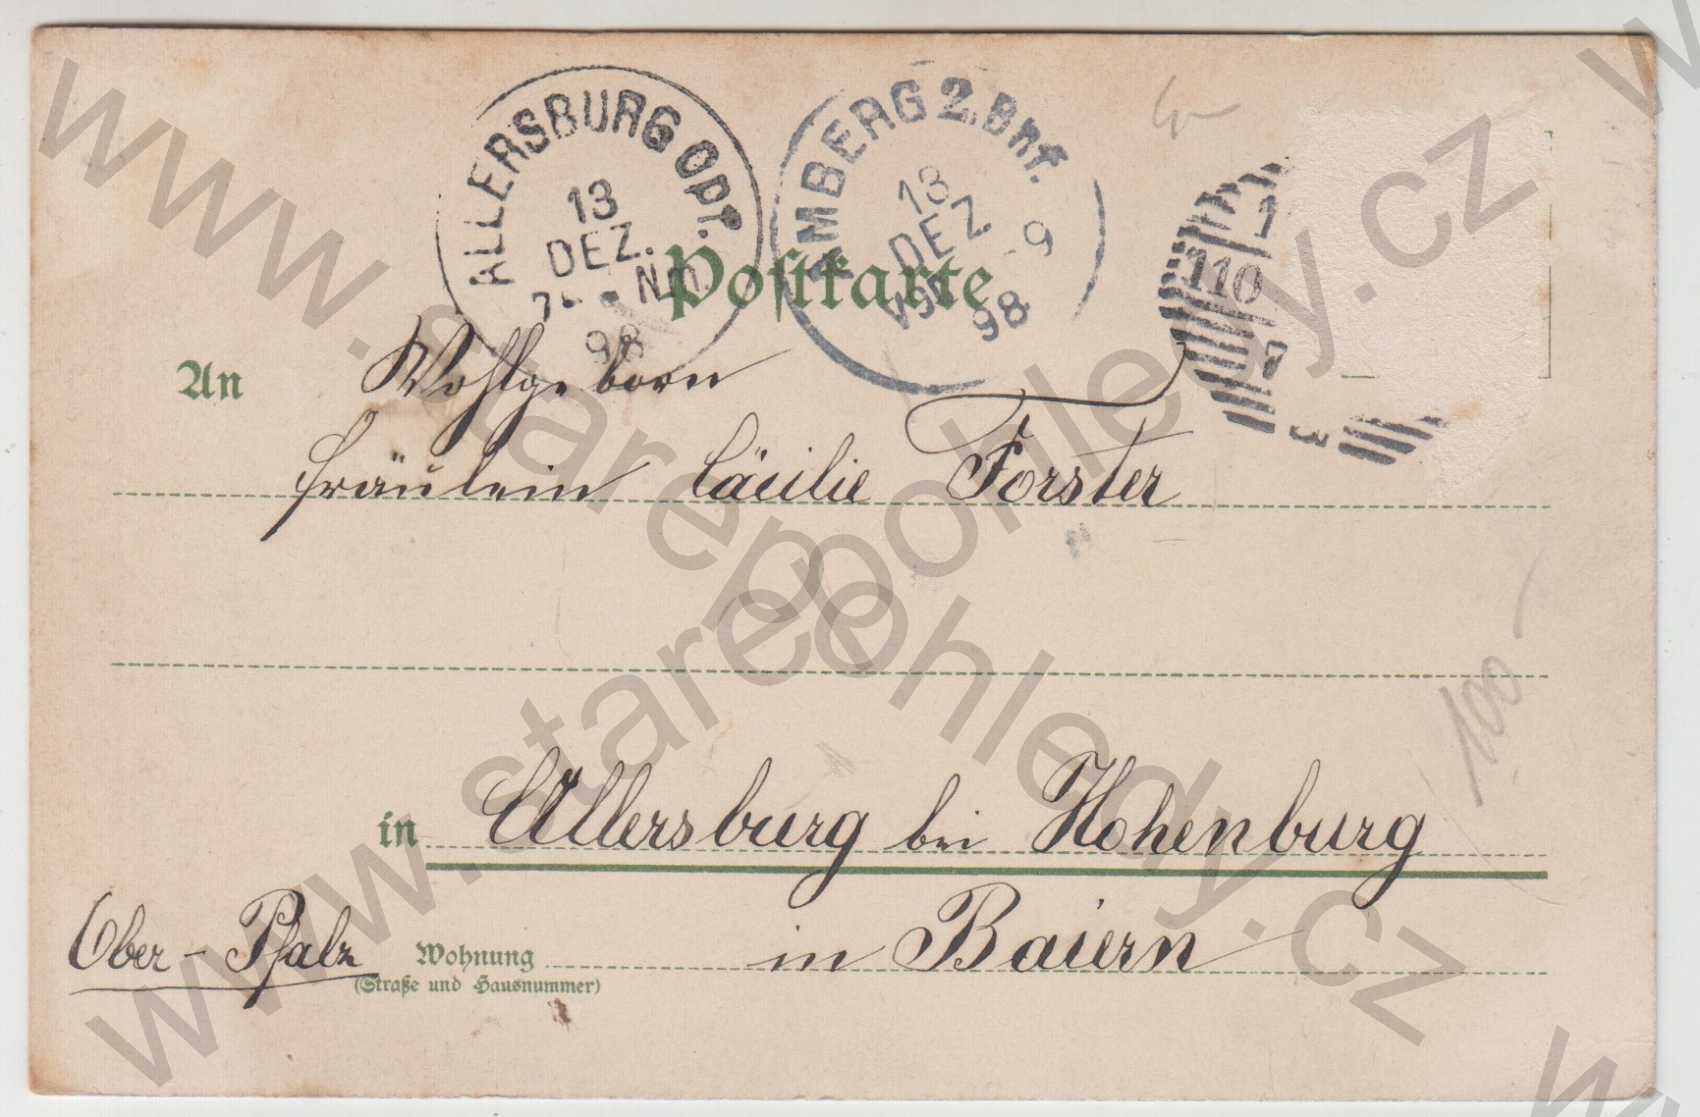 ALLERSBURG Opf.
13
DEZ.
Nm.
98
AMBERG 2. Bhf.
13
DEZ
9
98
1
110
7
Postkarte
An
Wohlgeborn
Fräulein Cäcilie Forster
100
in Allersburg bei Hohenburg
Ober-Pfalz
Wohnung in Baiern
(Straße und Hausnummer)
www.starepohledy.cz
www.starepohledy.cz